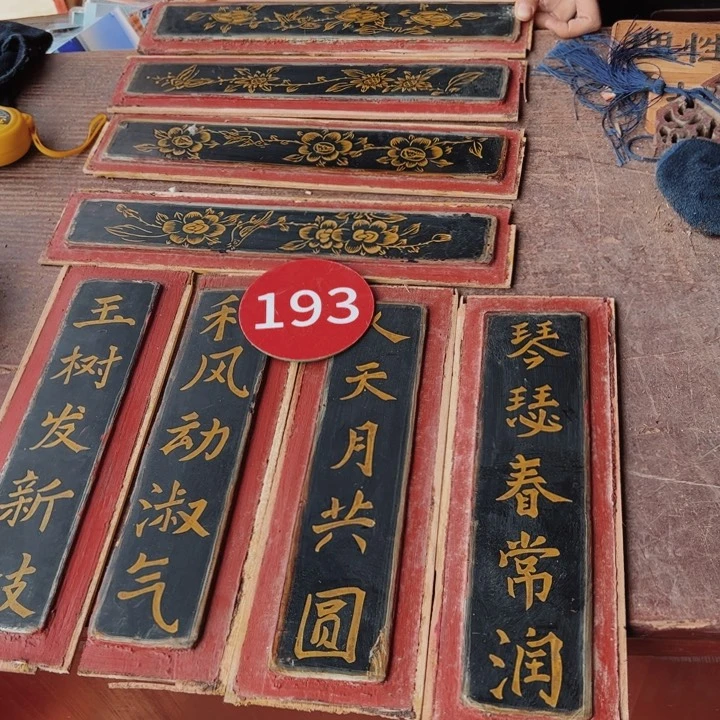 193
琴瑟春常润
天月共圆
和风动淑气
玉树发新枝